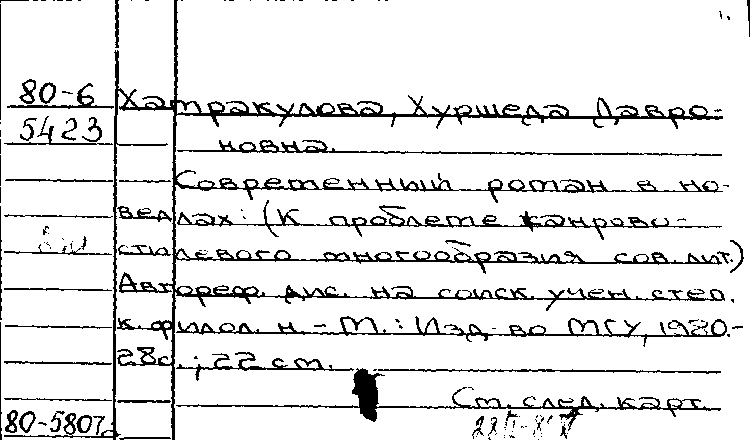 80-6 Хатракулова, Хуршеда Давро-
5423 новна.
Современный роман в но-
веллах: (К проблеме жанрово-
стилевого многообразия сов. лит.)
Автореф. дис. на соиск. учен. степ.
к. филол. н. - М.: Изд-во МГУ, 1980.-
28с.; 22 см.
См. след. карт.
80-5807